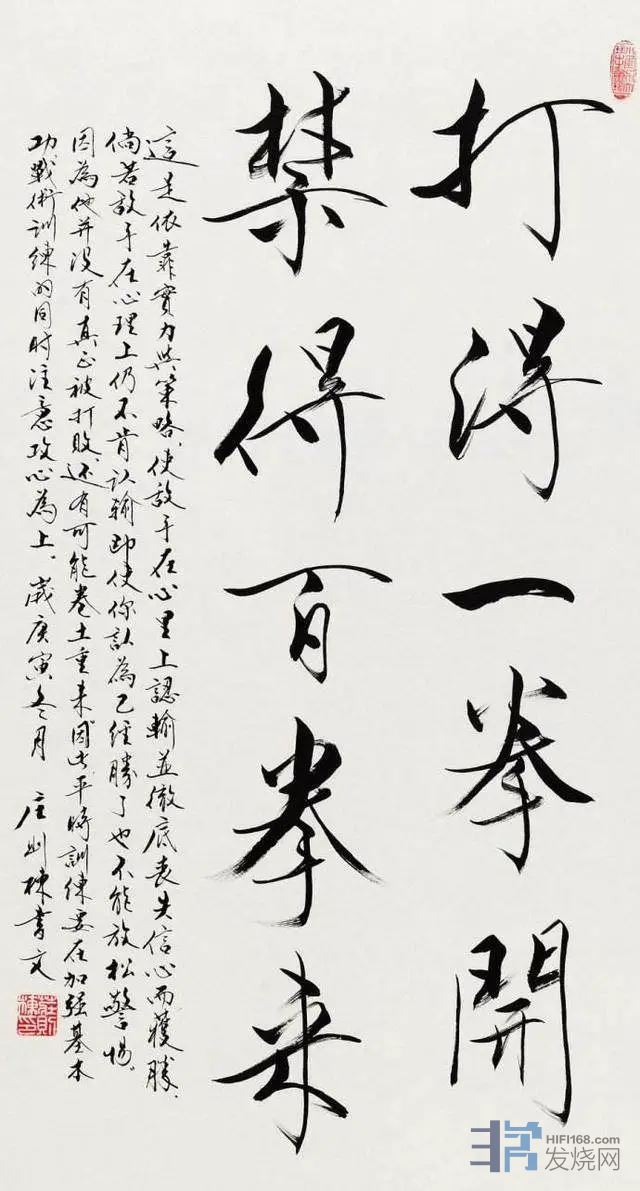 打得一拳開
禁得百拳来
這是依靠實力與策略,使敌手在心里上認輸並徹底丧失信心而獲勝。
倘若敌手在心理上仍不肯认输即使你認為已經勝了也不能放松警惕。
因為他并没有真正被打敗,还有可能卷土重来因此平時訓練要在加强基本
功戰術訓練的同时注意攻心為上。歲庚寅冬月 庄则棟書文
莊則棟印
HIFI168.com
发烧网